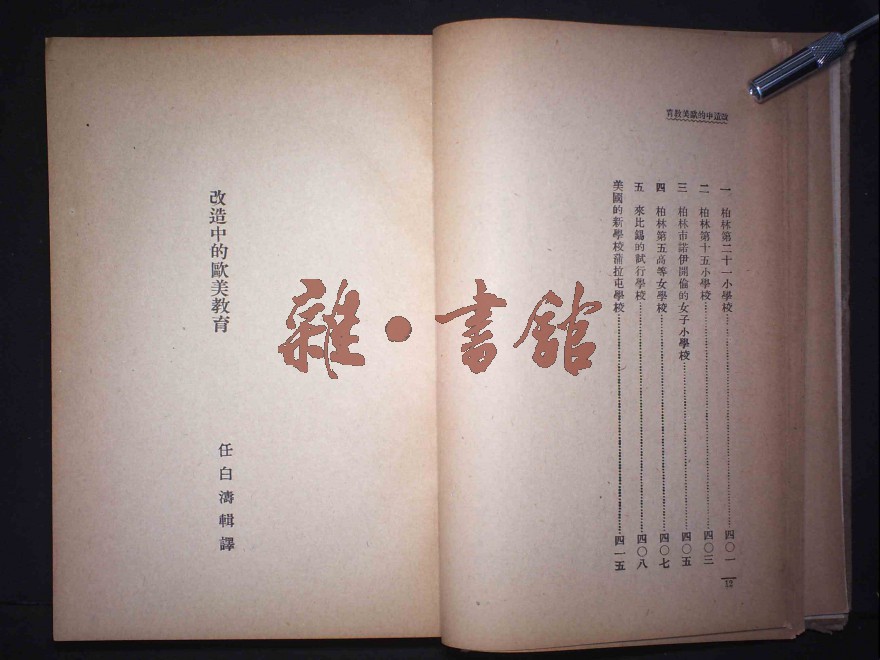 改造中的歐美教育
一 柏林第二十一小學校……四〇一
二 柏林第十五小學校……四〇三
三 柏林市諾伊開倫的女子小學校……四〇五
四 柏林第五高等女學校……四〇七
五 來比錫的試行學校……四〇八
美國的新學校蒲拉屯學校……四一五
12
改造中的歐美教育
任白濤輯譯
雜·書館